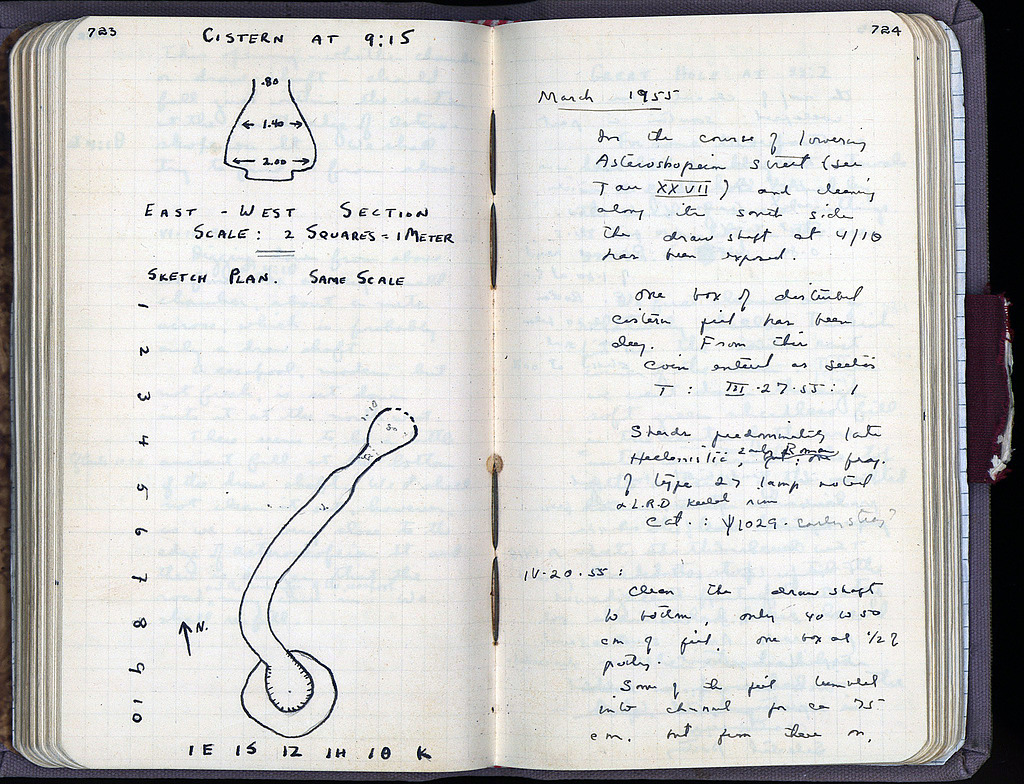 723
CISTERN AT 9:15
.80
1.40
2.00
EAST - WEST SECTION
SCALE: 2 SQUARES = 1 METER
SKETCH PLAN. SAME SCALE
1
2
3
4
5
6
7
8
9
10
N.
ΙΕ ΙS ΙΖ ΙΗ ΙΘ Κ
724
March 1955
In the course of lowering
Asteroskopeion street (see
T au XXVII) and cleaning
along its south side
the draw shaft at 4/ΙΘ
has been exposed.
One box of disturbed
cistern fill has been
dug. From this
coin entered as section
T : III·27·55: 1
Sherds predominantly late
Hellenistic, early Roman frag.
of type 27 lamp noted
& L.R.D keeled rim
Cat.: Ψ1029.
IV·20·55:
Clean the draw shaft
to bottom, only 40 to 50
cm of fill. One box at 1/2 of
pottery.
Some of the fill tumbled
into channel for ca 75
cm. but from there on,